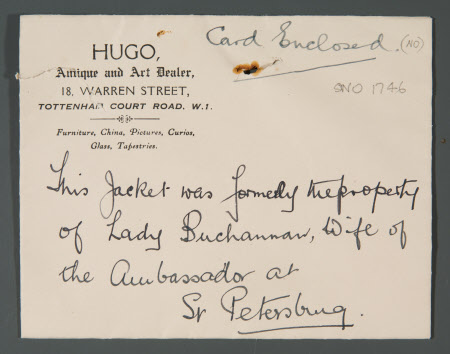 HUGO,
Antique and Art Dealer,
18, WARREN STREET,
TOTTENHAM COURT ROAD. W.1.
Furniture, China, Pictures, Curios,
Glass, Tapestries.
Card Enclosed. (NO)
SNO 1746
This Jacket was formedly the property
of Lady Buchannan, Wife of
the Ambassador at
St Petersburg.